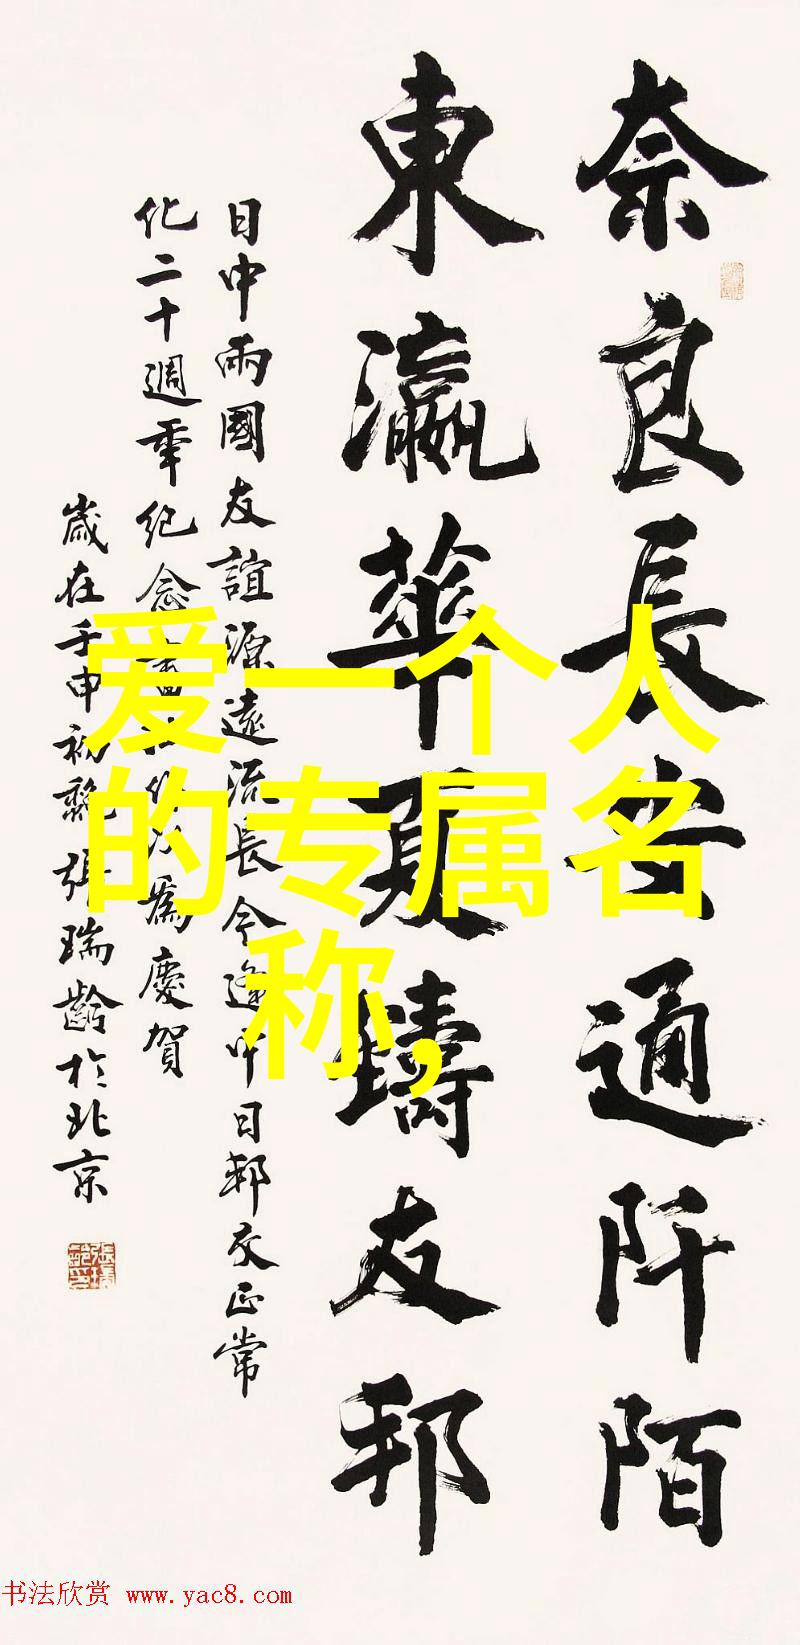 奈良長安通阡陌
東瀛華夏鑄友邦
日中兩國友誼源遠流長今逢中日邦交正常
化二十週年紀念書
為慶賀
歲在壬申初
張瑞齡於北京
爱一个人
的专属名
称,
书法欣赏 www.yac8.com